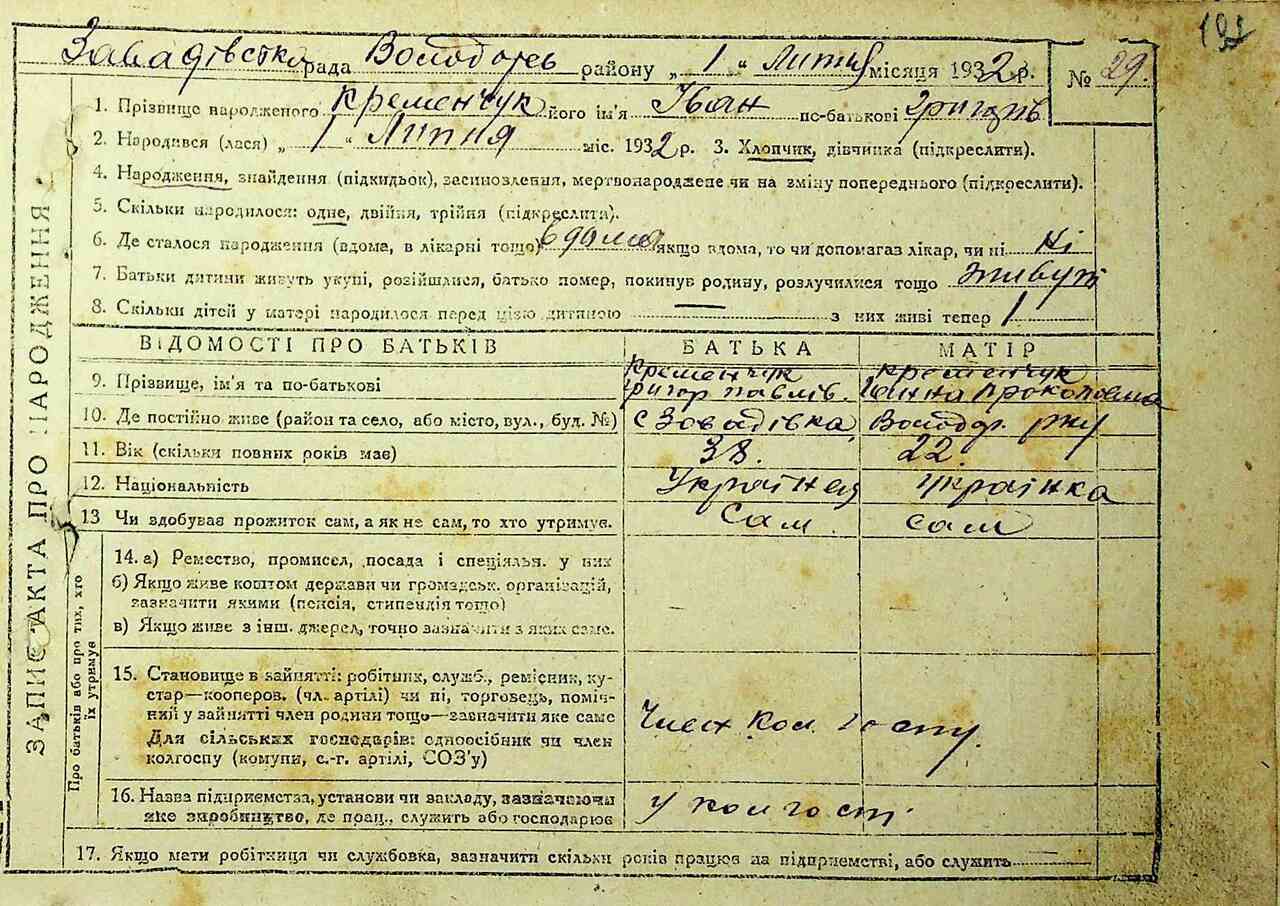 Завадівська рада Володорсь району „ 1 “ Липня місяця 1932 р. № 29.
1. Прізвище народженого Кременчук його ім'я Іван по-батькові
2. Народився (лася) „ 1 “ Липня міс. 1932 р. 3. Хлопчик, дівчинка (підкреслити).
4. Народження, знайдення (підкидьок), засиновлення, мертвонароджепе чи на зміну попереднього (підкреслити).
5. Скільки народилося: одне, двійня, трійня (підкреслити).
6. Де сталося народження (вдома, в лікарні тощо) вдома якщо вдома, то чи допомагав лікар, чи ні Ні
7. Батьки дитини живуть укупі, розійшлися, батько помер, покинув родину, розлучилися тощо живуть
8. Скільки дітей у матері народилося перед цією дитиною — з них живі тепер 1
ВІДОМОСТІ ПРО БАТЬКІВ БАТЬКА МАТІР
9. Прізвище, ім'я та по-батькові Кременчук Григор Павлів. Кременчук Ганна Прокоповна
10. Де постійно живе (район та село, або місто, вул., буд. №) с Зовадівка Володор.
11. Вік (скільки повних років має) 38. 22.
12. Національність Українец українка
13 Чи здобуває прожиток сам, а як не сам, то хто утримує. Сам сам
14. а) Ремество, промисел, посада і спеціяльн. у них
б) Якщо живе коштом держави чи громадськ. організацій,
зазначити якими (пенсія, стипендія тощо)
в) Якщо живе з інш. джерел, точно зазначити з яких саме.
15. Становище в зайнятті: робітник, служб., ремісник, ку-
стар—кооперов. (чл. артілі) чи ні, торговець, поміч-
ний у зайнятті член родини тощо—зазначити яке саме
Для сільських господарів: одноосібник чи член
колгоспу (комупи, с.-г. артілі, СОЗ'у)
Член Кол. госпу.
16. Назва підприємства, установи чи закладу, зазначаючи
яке виробництво, де прац., служить або господарює
у колгосп.
17. Якщо мати робітниця чи службовка, зазначити скільки років працює на підприємстві, або служить
ЗАПИС АКТА ПРО НАРОДЖЕННЯ
Про батьків або про тих, хто
їх утримує